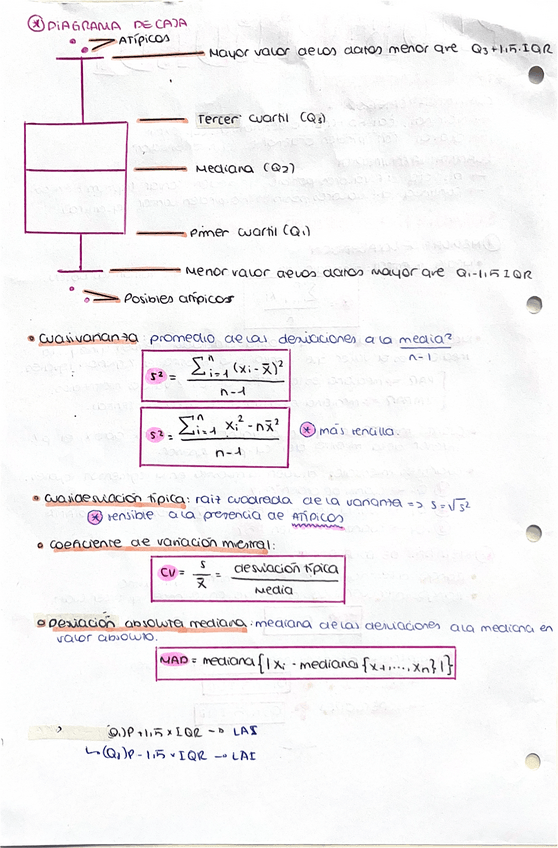 * DIAGRAMA DE CAJA
ATÍPICOS
Mayor valor de los datos menor que Q3+1,5·IQR
Tercer cuartil (Q3)
Mediana (Q2)
Primer cuartil (Q1)
Menor valor de los datos mayor que Q1-1,5 IQR
Posibles atípicos
• Cuasivarianza: promedio de las desviaciones a la media²
n-1
s² = ∑ⁿᵢ₌₁ (xi - x̄)² / n-1
s² = ∑ⁿᵢ₌₁ xi² - nx̄² / n-1 * más sencilla.
• Cuasidesviación típica: raíz cuadrada de la varianza => s=√s²
* sensible a la presencia de ATÍPICOS
• Coeficiente de variación mestral:
CV = s / x̄ = desviación típica / media
• Desviación absoluta mediana: mediana de las desviaciones a la mediana en
valor absoluto.
MAD = mediana {|xi - mediana {x+,...,xn}|}
Q1)P +1,5 x IQR → LAS
↳ (Q1)P - 1,5 x IQR → LAI